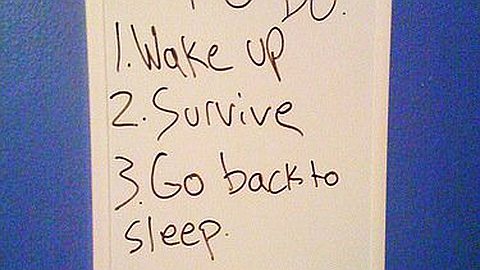 TO DO:
1. Wake up
2. Survive
3. Go back to
sleep.